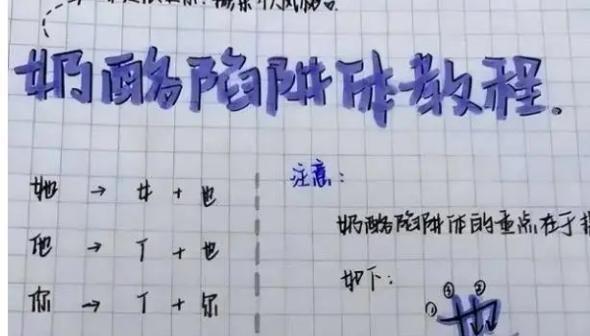 奶酪陷阱体教程.
她 → 女 + 也
他 → 亻 + 也
你 → 亻 + 尔
注意:
奶酪陷阱体的重点在于
如下:
① ② ③
也